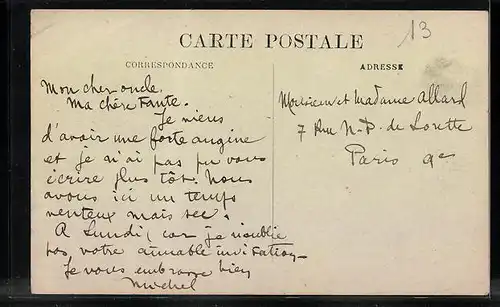 13
CARTE POSTALE
CORRESPONDANCE
ADRESSE
Mon cher oncle.
Ma chère Tante.
Je viens
d'avoir une forte angine
et je n'ai pas pu vous
écrire plus tôt. Nous
avons ici un temps
venteux mais sec.
A Lundi (car je n'oublie
pas votre aimable invitation
Je vous embrasse bien
Michel
Monsieur et Madame Allard
7 Rue N-D. de Lorette
Paris 9e